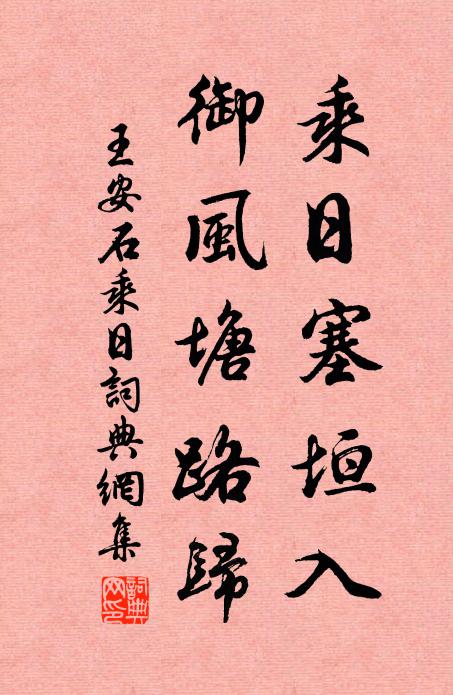 乘日塞垣入
御風塘路歸
王安石乘日詞典網集
詞典網印